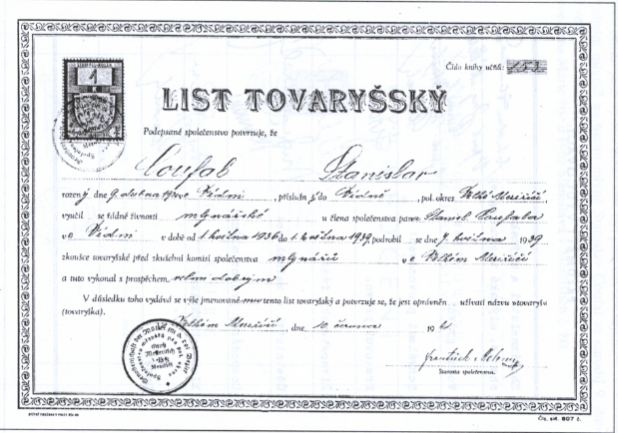 Číslo knihy učňů: 153.
1
LIST TOVARYŠSKÝ
Podepsané společenstvo potvrzuje, že
Coufal Stanislav
rozený dne 9. dubna ve Vídni, příslušný do Vídně, pol. okres Velké Meziříčí,
vyučil se řádně živnosti mlynářské u člena společenstva pana Coufala
ve Vídni v době od 1. května 1936 do 1. května 1939, podrobil se dne 7. května 1939
zkoušce tovaryšské před zkušební komisí společenstva mlynářů ve Velkém Meziříčí
a tuto vykonal s prospěchem velmi dobrým
V důsledku toho vydává se výše jmenovanému tento list tovaryšský a potvrzuje se, že jest oprávněn užívati názvu tovaryše
(tovaryška).
Velkém Meziříčí, dne 10 června 194
František
Starosta společenstva.
Čís. skl. 807 č.